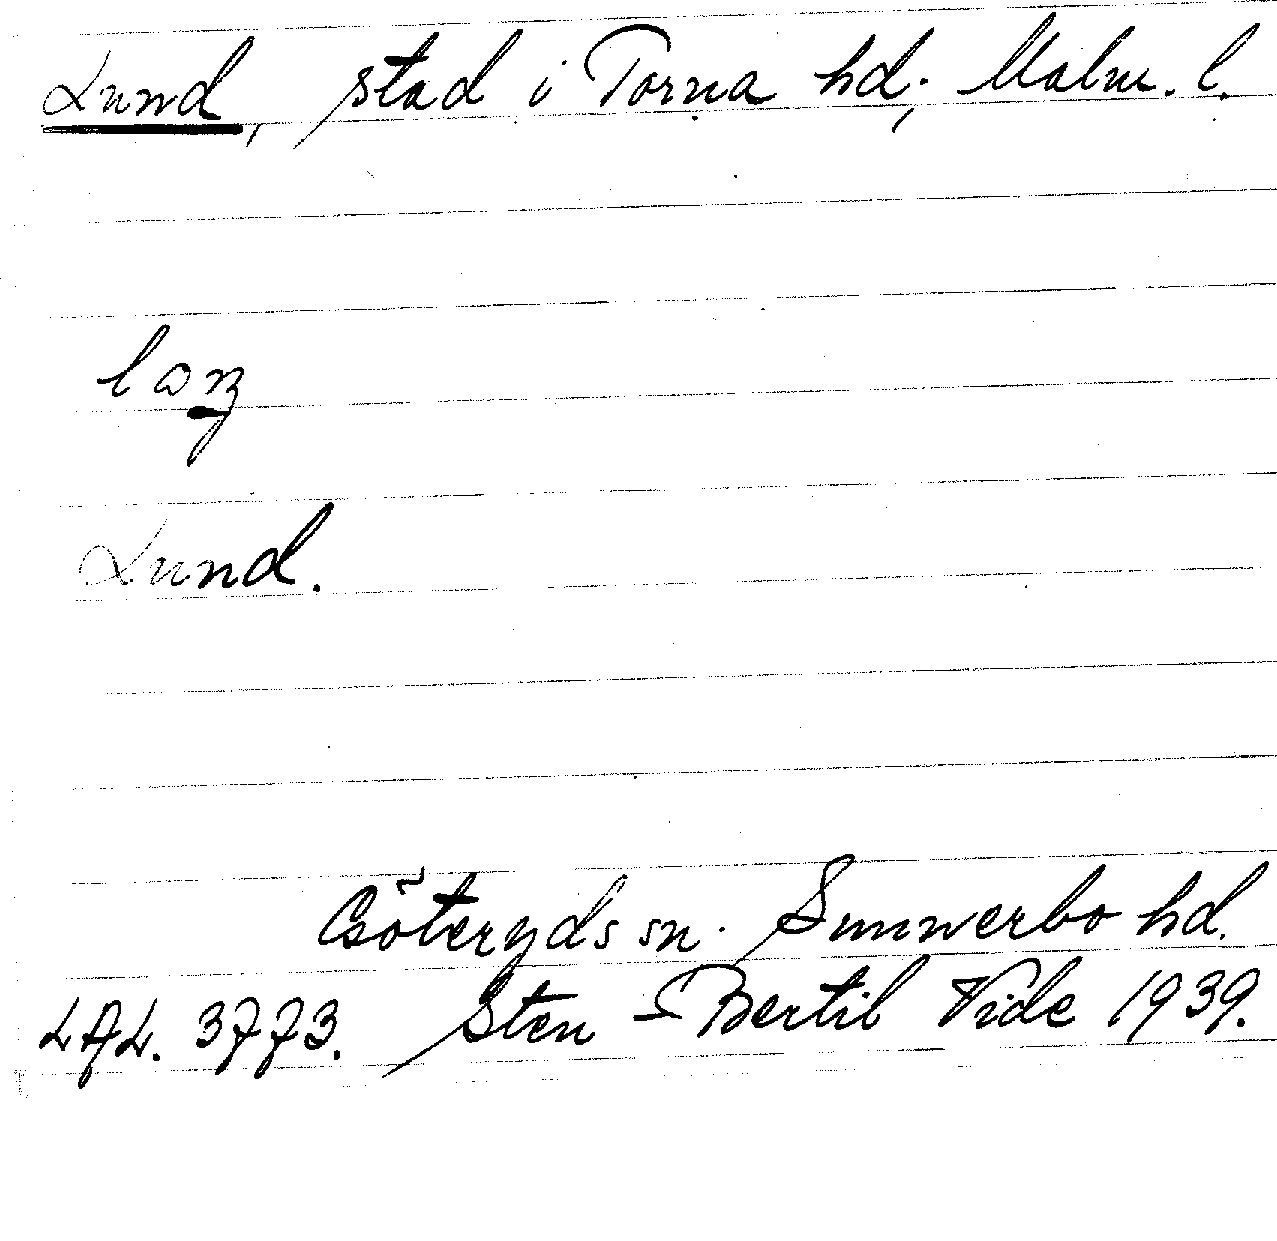 Lund, stad i Torna hd, Malm. l.
Lund.
Göteryds sn. Sunnerbo hd.
LAL. 3773. Sten-Bertil Vide 1939.